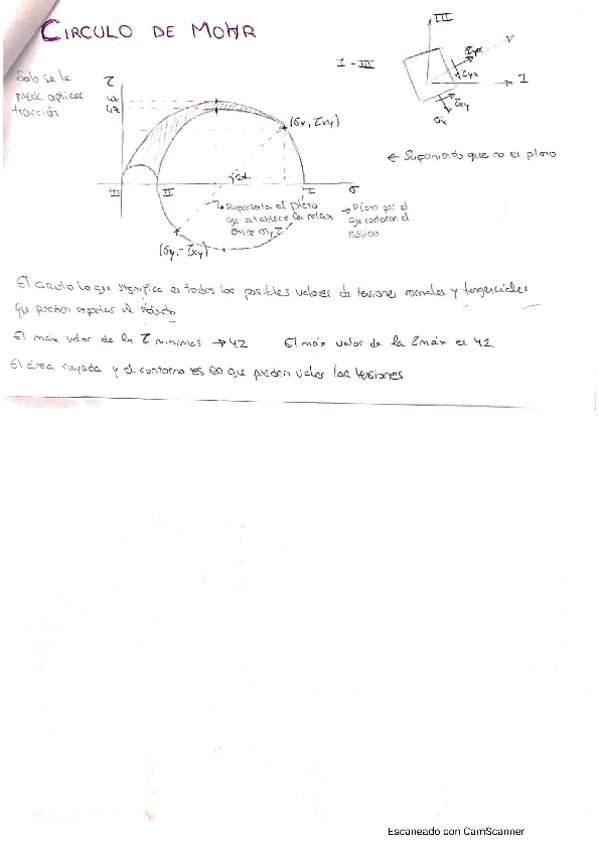 CIRCULO DE MOHR
Solo se le
puede aplicar
tracción
τ
42
III
II
I
σ
(σx, τxy)
2α
(σy, -τxy)
Representa el plano
que establece la relax
entre σ y τ
→ Plano por el
que cortaron el
sólido
I - III
III
I
τyx
τxy
σx
← Suponiendo que no es plano
El circulo lo que significa es todos los posibles valores de tensiones normales y tangenciales
que pueden
El máx valor de la τ minimas → 42
El máx valor de la τmáx es 42
El área rayada y el contorno es lo que pueden valer las tensiones
Escaneado con CamScanner